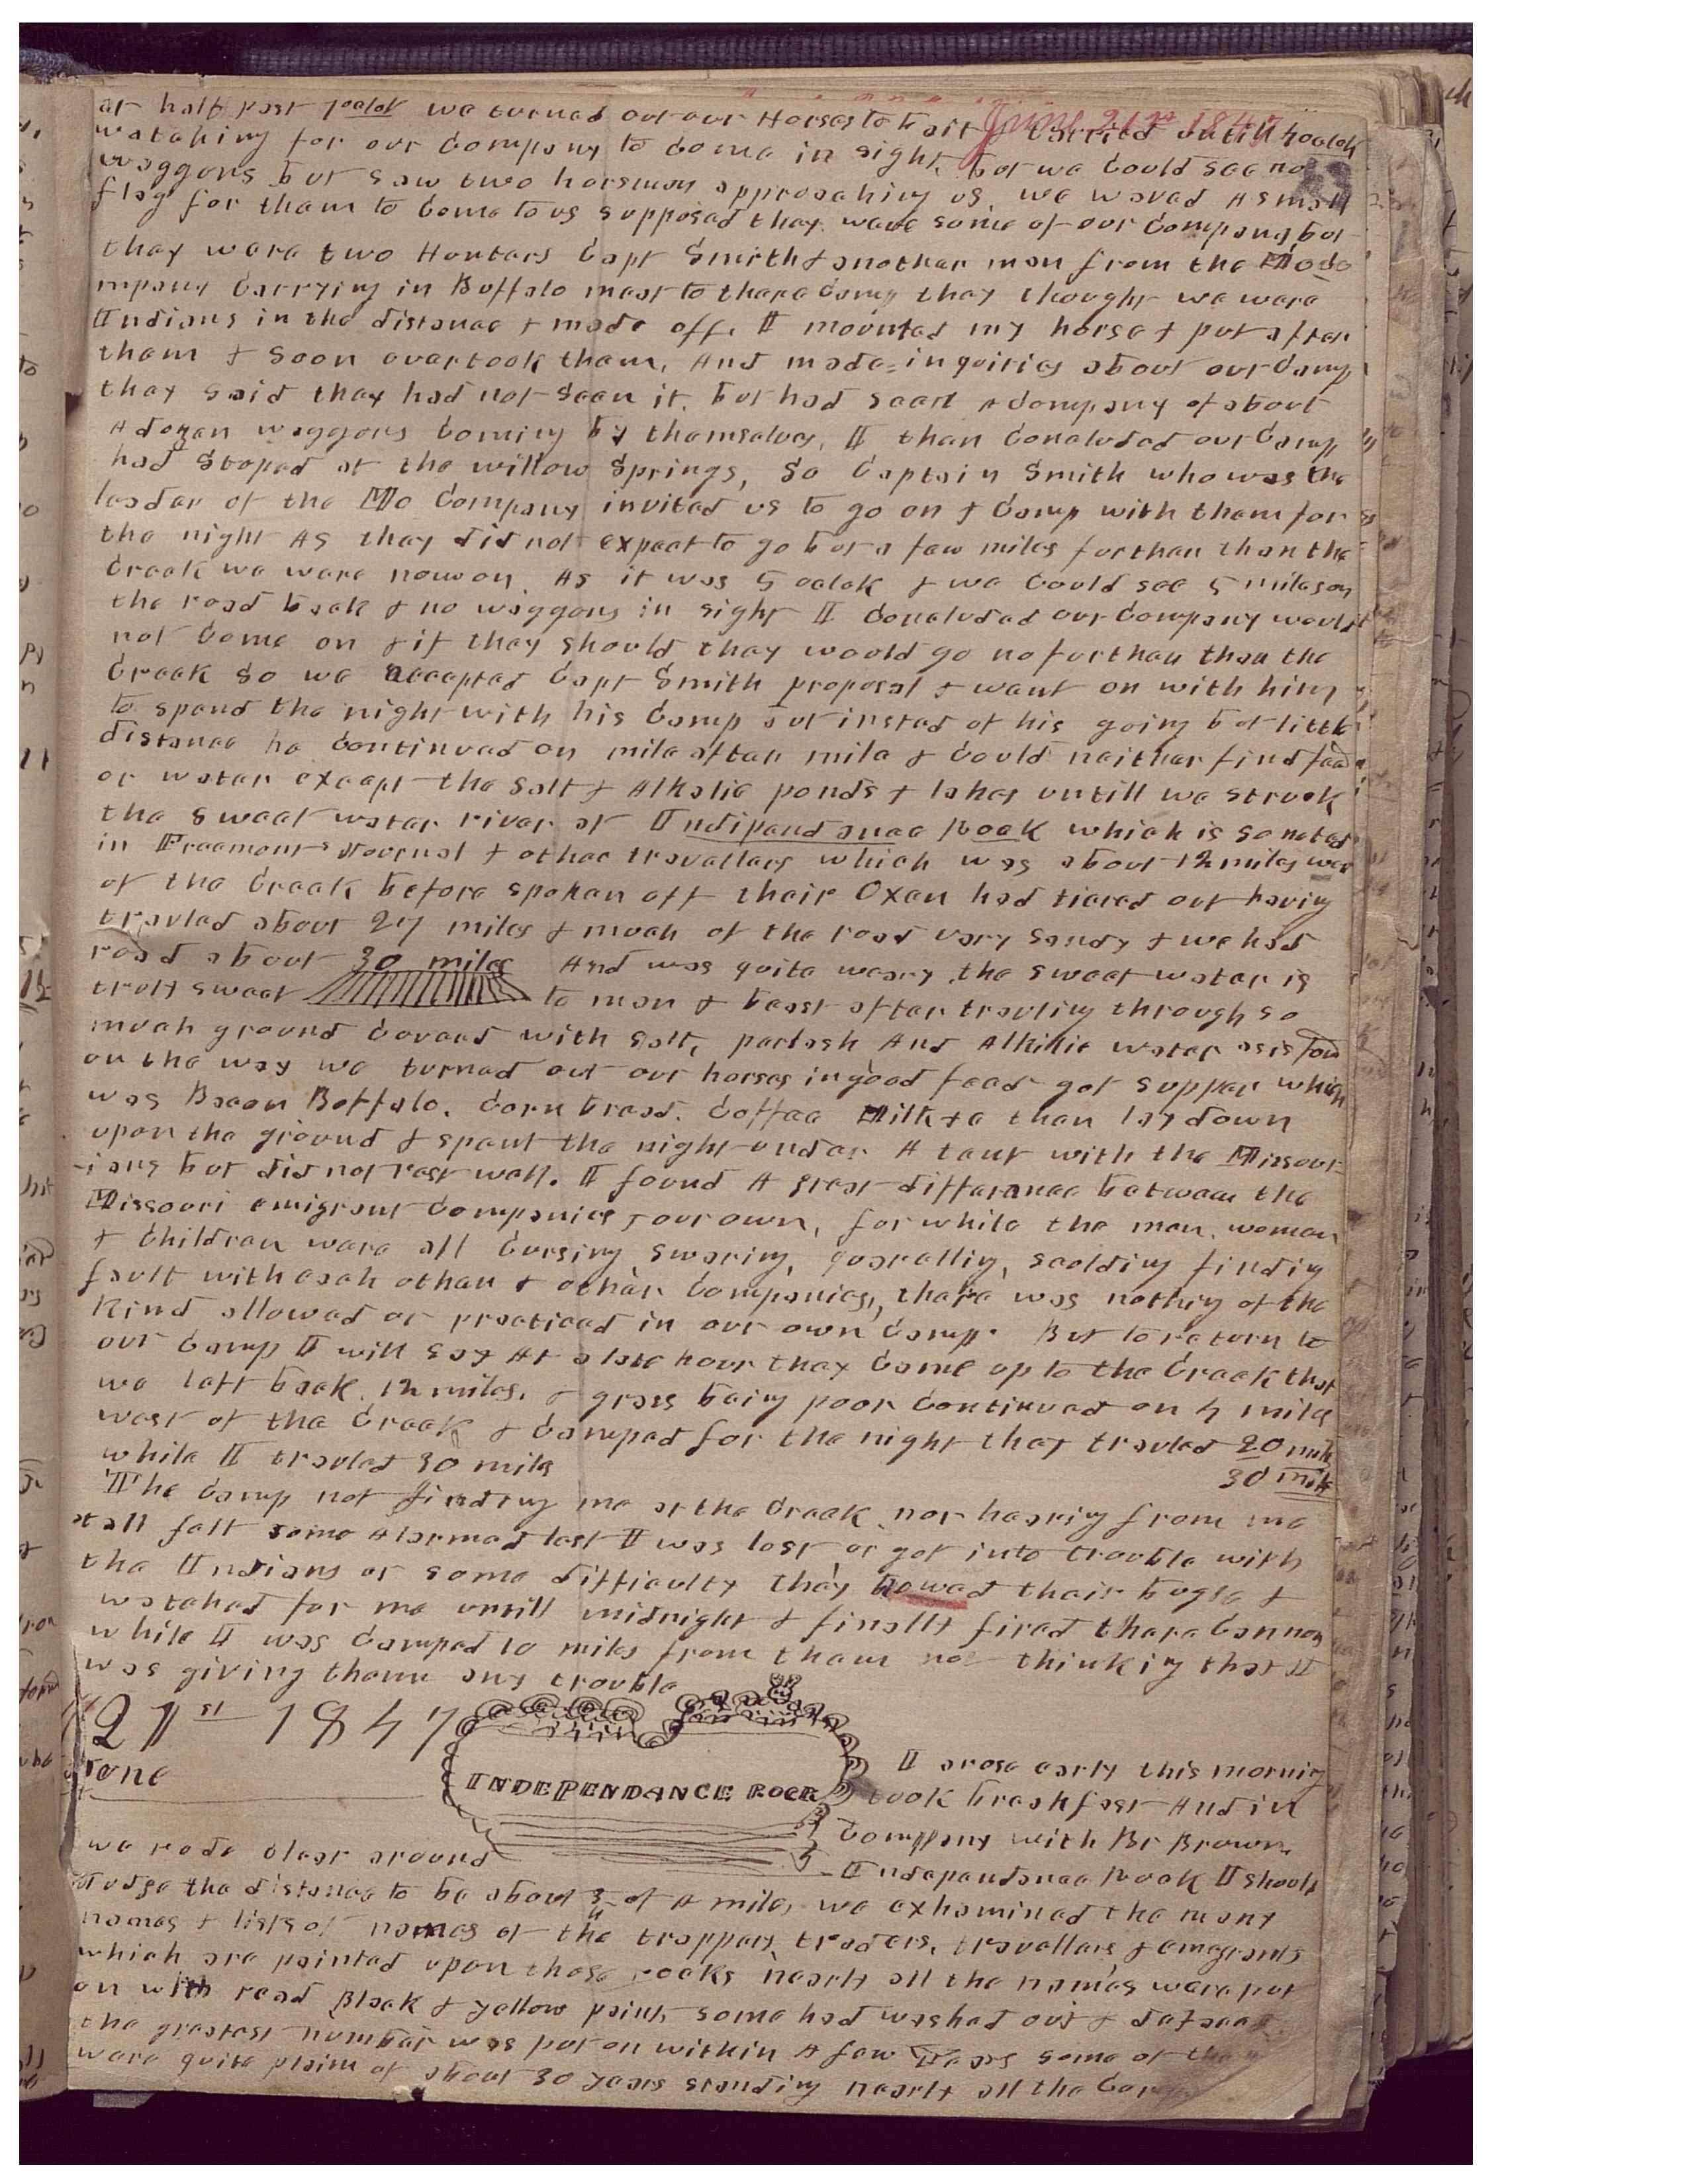 at half past 1 oclok we turned out our Horses to bait & tarried untill 4 oclok
June 21st 1847
watching for our Company to come in sight, but we could see no
waggons but saw two horsmen approaching us, we waved A small
flag for them to come to us supposed they were some of our Company, but
they were two Hunters Capt Smith & another man from the Mo Co
mpany Carrying in Buffalo meat to there camp they thought we were
Indians in the distance & made off. I mounted my horse & put after
them & soon overtook them, And made inquiries about our Camp
they said they had not seen it. but had seen A Company of about
A dozen waggons coming by themselves, I than concluded our Camp
had stoped at the willow Springs, So Captain Smith who was the
leader of the Mo Company invited us to go on & Camp with them for
the night As they did not expect to go but a few miles forthar than the
Creek we were now on. As it was 5 oclok & we Could see 5 miles on
the road back & no waggons in sight I concluded our Company would
not Come on & if they should they would go no forthar than the
Creek so we accepted Capt Smith proposal & went on with him
to spend the night with his Camp but insted of his going but little
distance he continued on mile after mile & could neither find feed
or water except the Salt & Alkalie ponds & lakes untill we struck
the sweet water river at Indipendance Rock which is so noted
in Freemonts Journal & other travellers which was about 12 miles west
of the Creek before spoken off their Oxen had tiered out having
travled about 27 miles & much of the road very sandy & we had
road about 30 miles And was quite weary, the sweet water is
truly sweet to man & beast after travling through so
much ground covered with Salt, perlash And Alkilie water as is found
on the way we turned out our horses in good feed got supper which
was Bacon Buffalo, Corn bread. Coffee Milk &c than lay down
upon the ground & spent the night under A tent with the Missour-
-ians but did not rest well. I found A great differance between the
Missouri emigrant Companies & our own, for while the men, women
& Children were all Cursing, swaring, quarelling, scolding finding
fault with each other & other Companies, there was nothing of the
Kind allowed or practiced in our own Camp. But to return to
our Camp I will say At a late hour they Come up to the Creek that
we left back 12 miles, & grass being poor continued on 4 miles
west of the Creek & Camped for the night they travled 20 mile
while I travled 30 mile
30 mile
The Camp not finding me at the Creek nor hearing from me
at all felt some Alarmed lest I was lost or got into trouble with
the Indians or some difficulty they blowed their bugle &
watched for me untill midnight & finally fired there Cannon
while I was Camped 10 miles from them not thinking that I
was giving them any trouble
21st 1847
INDEPENDANCE ROCK
I arose early this morning
took breakfast And in
Company with Br Brown.
we rode clear around
Independance Rock I should
Judge the distance to be about 3/4 of A mile, we exhamined the many
names & lists of names of the trappers, traders, travellers & emegrants
which are painted upon those rocks nearly all the names were put
on with read Black & yellow paint, some had washed out & defaced
the greatest number was put on within A few Years some of them
were quite plain of about 30 years standing nearly all the